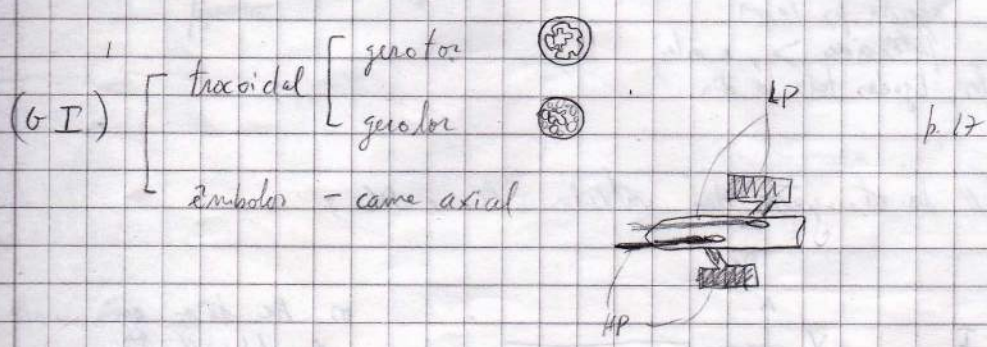 (G I)
trocoidal
gerotor
gerolor
êmbolos - came axial
LP
HP
p. 17